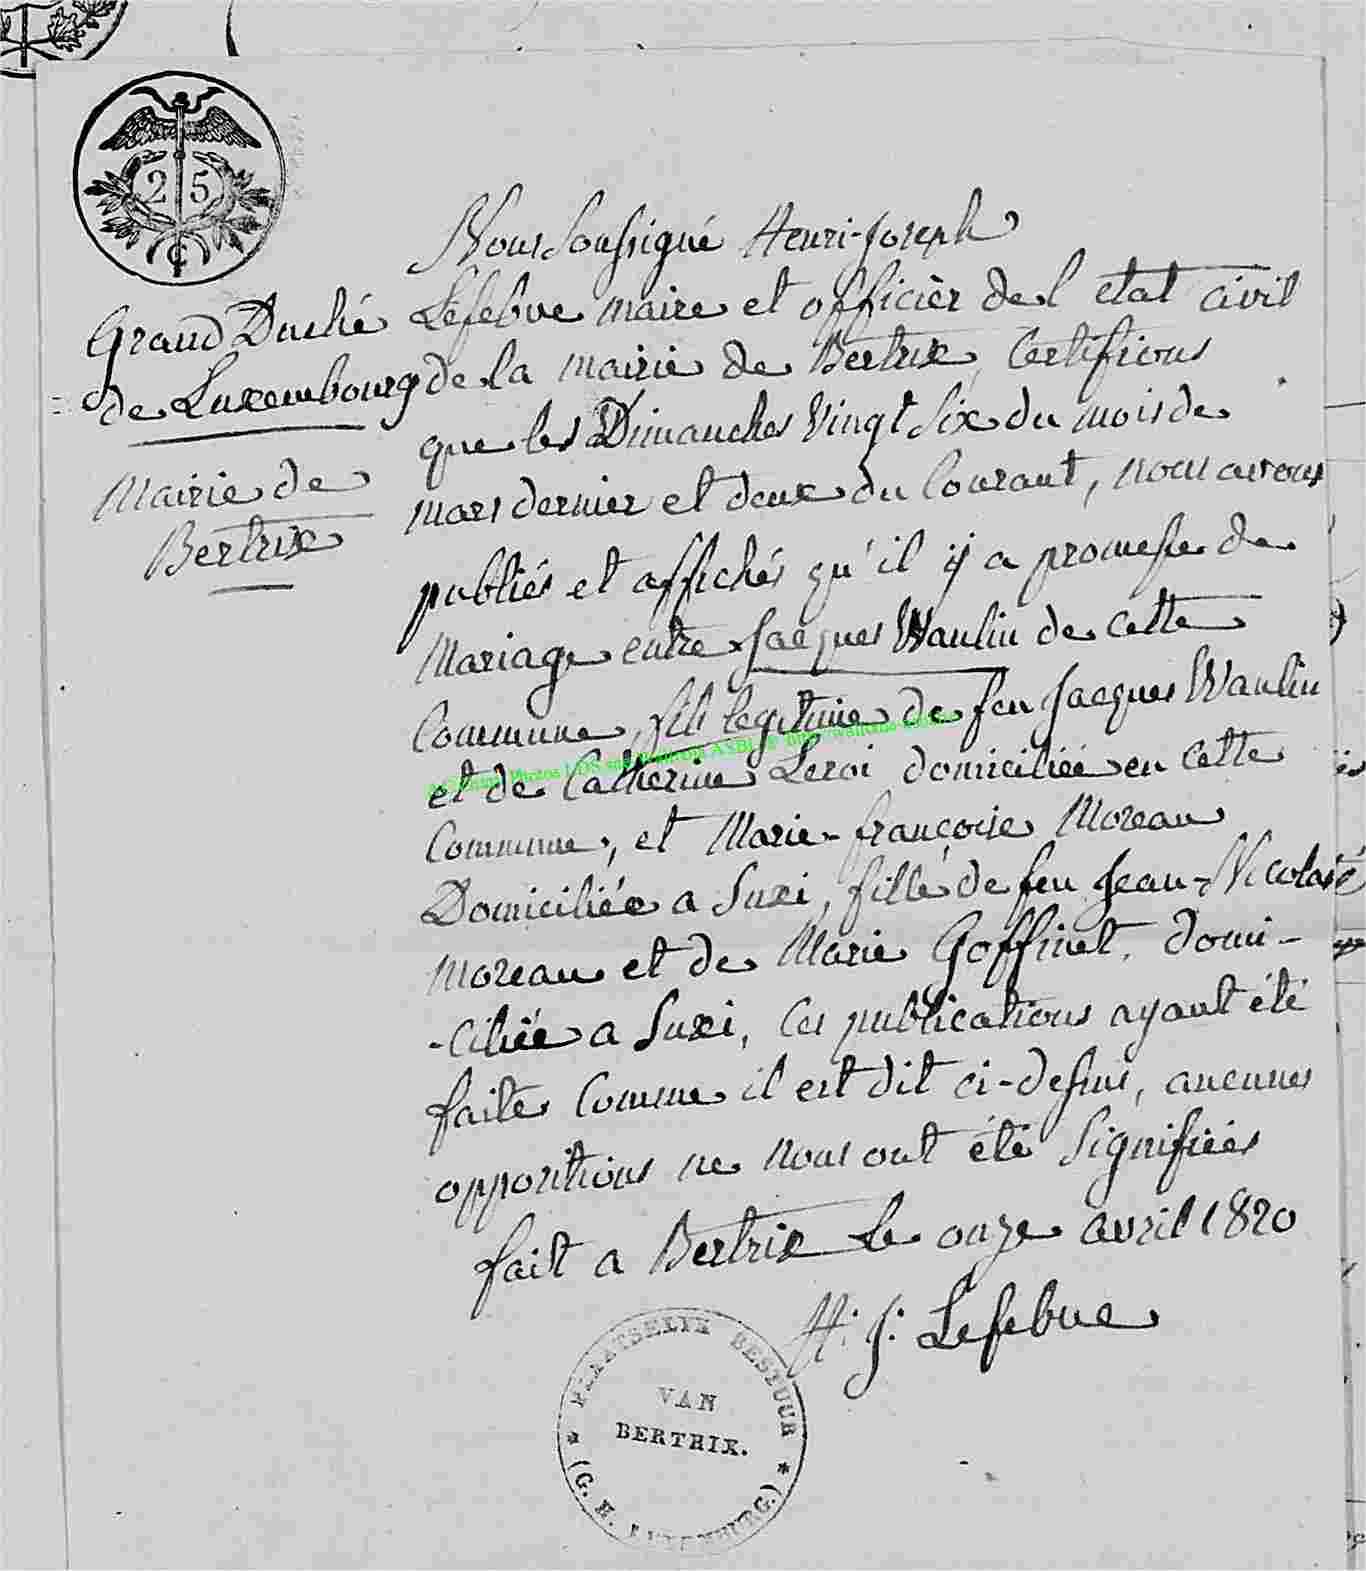 25
C
Grand Duché
de Luxembourg
Mairie de
Bertrix
Nous Soussigné Henri-Joseph
Lefebve maire et officièr de l etat civil
de la mairie de Bertrix, Certifions
que les Dimanches Vingt Six du mois de
mars dernier et deux du Courant, nous avons
publiés et affichés qu'il ÿ a promesse de
Mariage entre Jacques Waulin de cette
Commune, fils legitime de feu Jacques Waulin
et de Catherine Leroi domiciliée en Cette
Commune, et Marie-françoise Moreau
Domiciliée a Suxi, fille de feu Jean-Nicolas
Moreau et de Marie Goffinet, domi-
-ciliée a Suxi, Ces publications ayant été
faites Comme il est dit ci-dessus, aucunes
oppositions ne nous ont été Signifiées
fait a Bertrix Le onze avril 1820
H. J. Lefebve
PLAATSELYK BESTUUR
VAN
BERTRIX.
(G. H. LUXEMBURG.)
Photos LDS ASBL